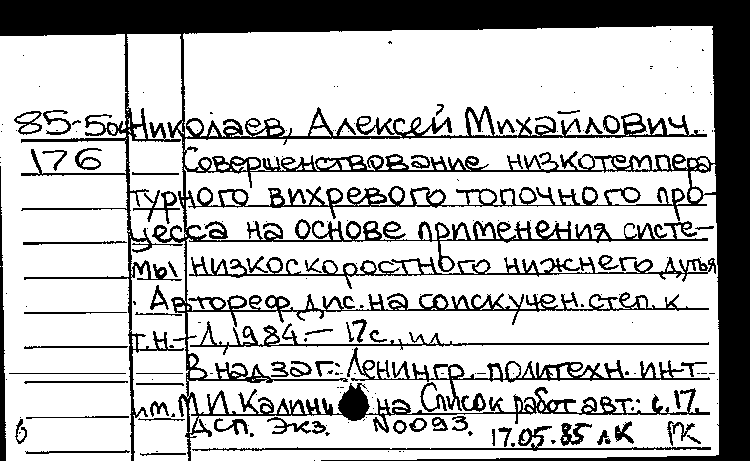 85-504 Николаев, Алексей Михайлович.
176 Совершенствование низкотемпера-
турного вихревого топочного про-
цесса на основе применения систе-
мы низкоскоростного нижнего дутья
. Автореф. дис. на соиск. учен. степ. к.
т.н.-Л., 1984.- 17с., ил.
В надзаг.: Ленингр. политехн. ин-т
им. М.И. Калинина Список работ авт.: с.17.
ДСП. Экз. N0093. 17.05.85 лк РК
б